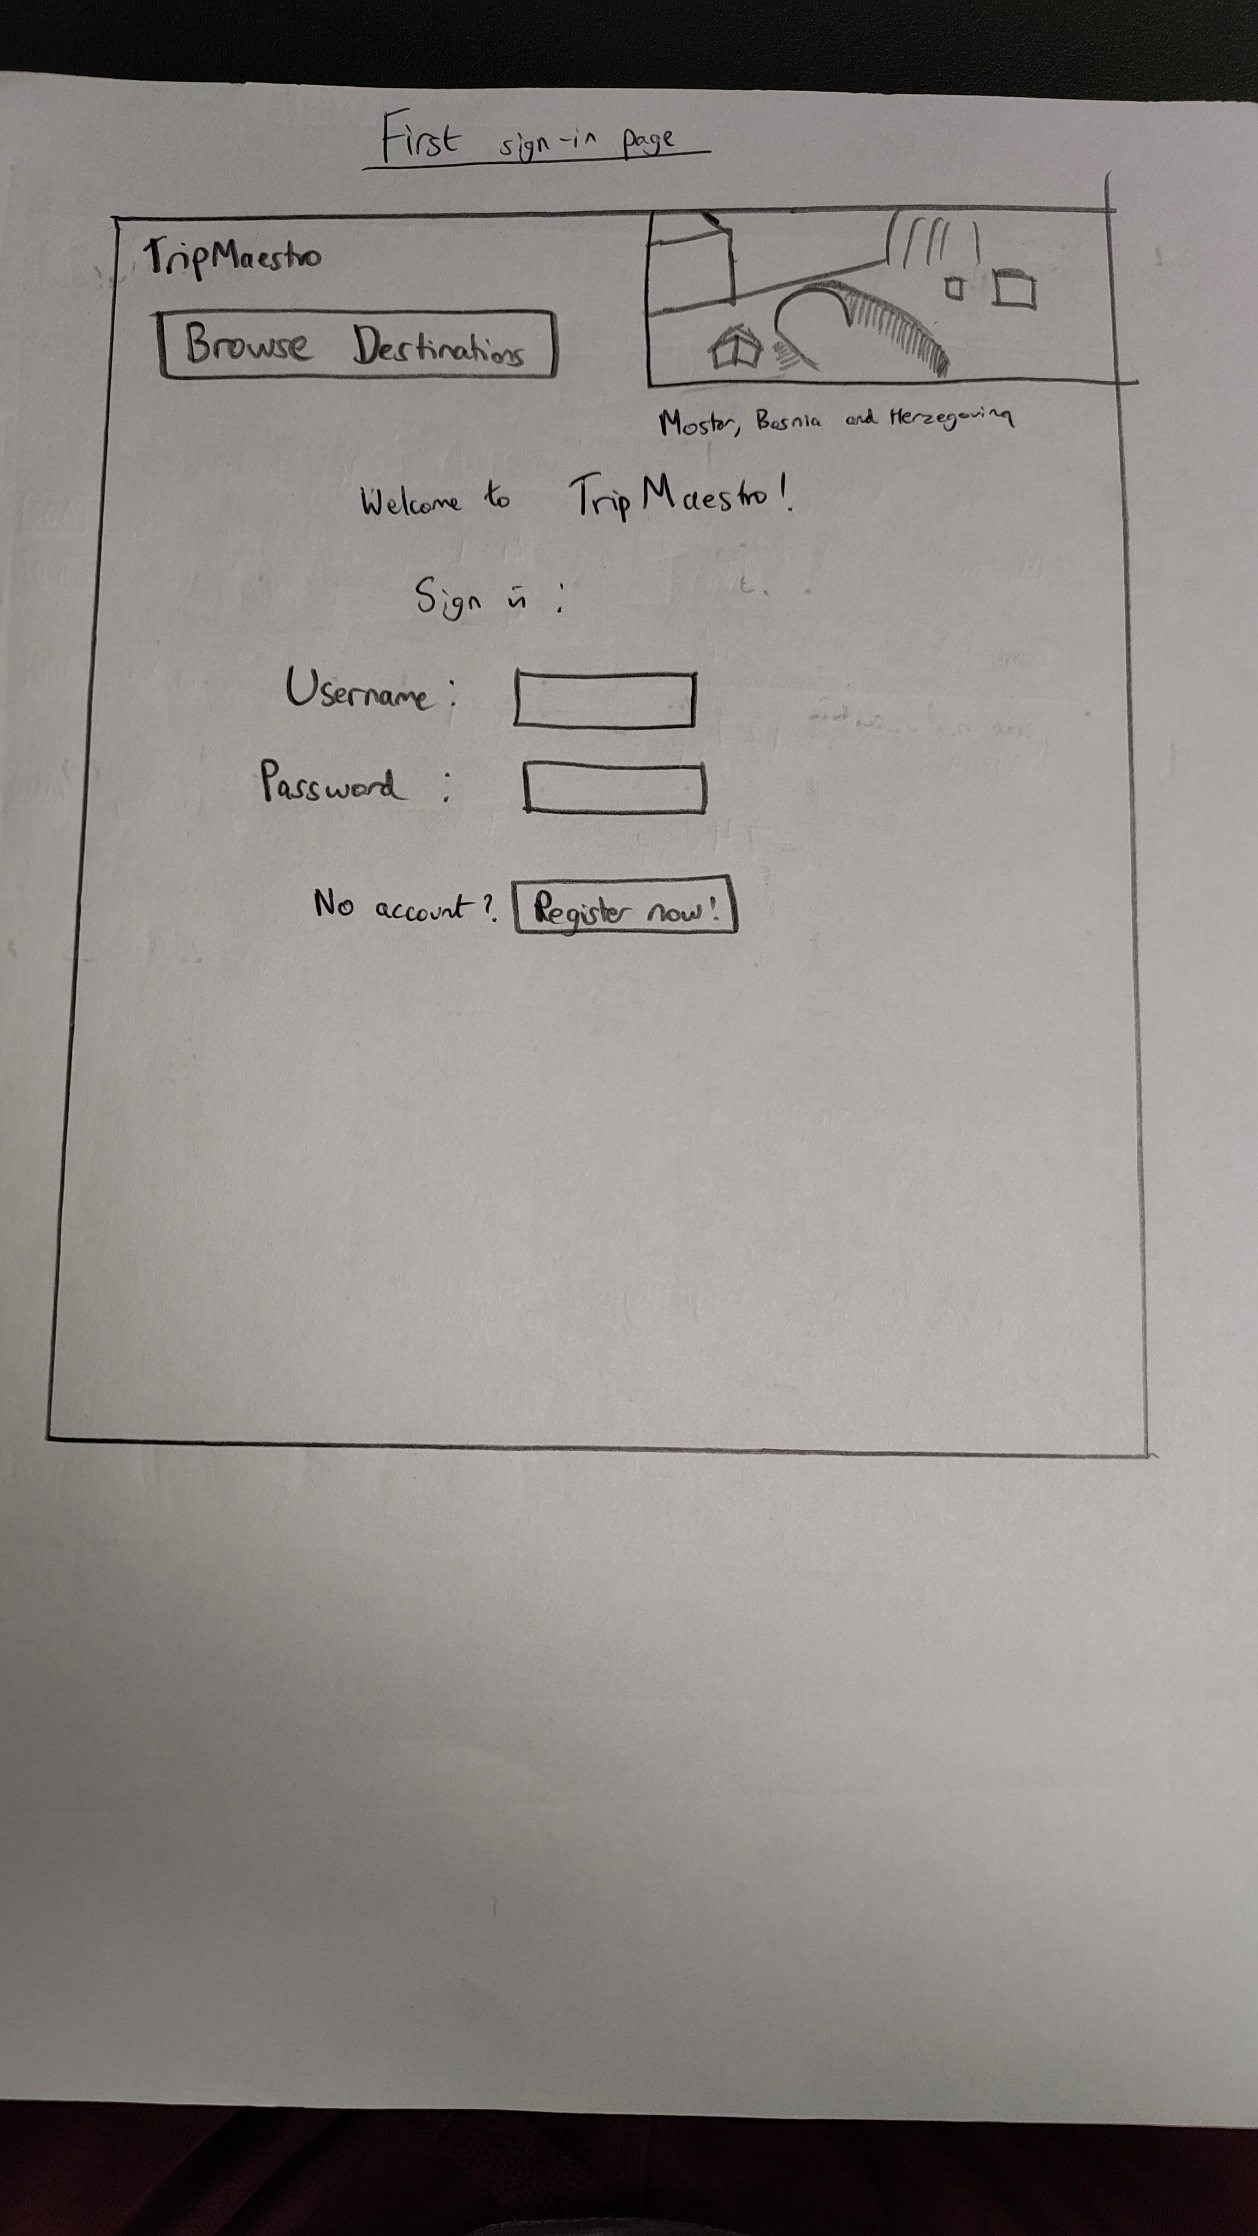 First sign-in page
TripMaestro
Browse Destinations
Mostar, Bosnia and Herzegovina
Welcome to TripMaestro!
Sign in :
Username :
Password :
No account? Register now!